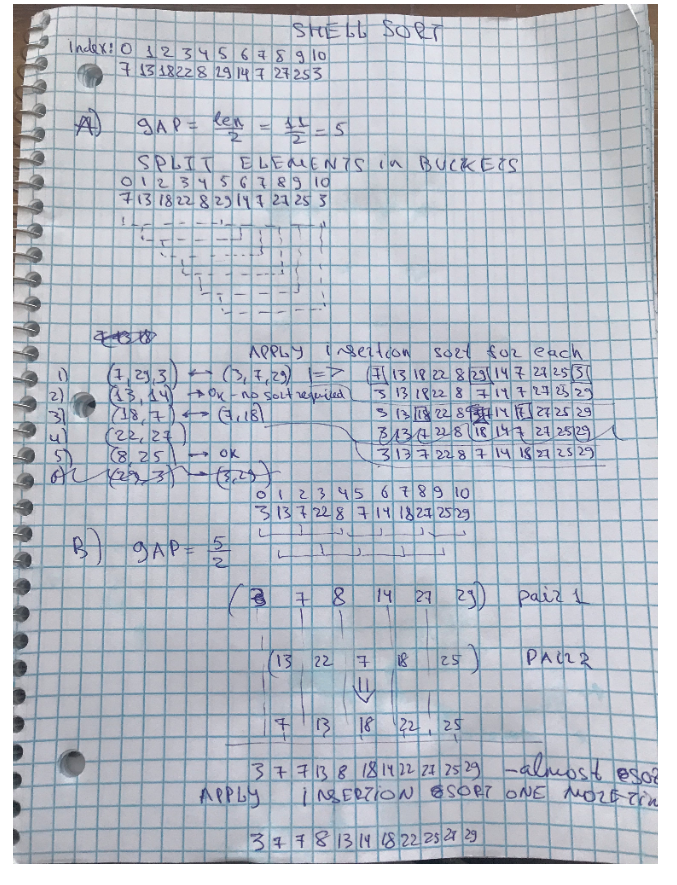 SHELL SORT
index: 0 1 2 3 4 5 6 7 8 9 10
7 13 18 22 8 29 14 7 27 25 3
A) gAP = len/2 = 11/2 = 5
SPLIT ELEMENTS in BUCKETS
0 1 2 3 4 5 6 7 8 9 10
7 13 18 22 8 29 14 7 27 25 3
APPLY insertion sort for each
1) (7, 29, 3) ↔ (3, 7, 29) |=> 7 13 18 22 8 29 14 7 27 25 3
2) (13, 14) → OK - no sort required 3 13 18 22 8 7 14 7 27 25 29
3) (18, 7) ↔ (7, 18) 3 13 18 22 8 14 7 27 25 29
4) (22, 27) 3 13 7 22 8 18 14 7 27 25 29
5) (8, 25) → OK 3 13 7 22 8 7 14 18 27 25 29
6) (29, 3) → (3, 29)
0 1 2 3 4 5 6 7 8 9 10
3 13 7 22 8 7 14 18 27 25 29
B) gAP = 5/2
(3 7 8 14 27 29) pair 1
(13 22 7 18 25) PAIR 2
⇓
7 13 18 22 25
3 7 7 13 8 18 14 22 27 25 29 - almost
APPLY INSERTION SORT ONE MORE
3 7 7 8 13 14 18 22 25 27 29